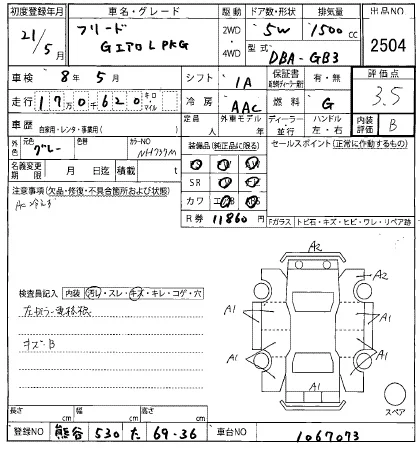 初度登録年月 車名・グレード 駆動 ドア数・形状 排気量 出品NO
21/5 フリード 2WD 5W 1500 CC 2504
G ITO L PKG 4WD 型式 DBA-GB3
車検 8年 5月 シフト IA 保証書 有・無 評価点
走行 17万0千620 キロ・マイル 冷房 AAC 燃料 G 3.5
車歴 自家用・レンタ・事業用( ) 定員 人 外車モデル ディーラー 並行 ハンドル 左・右 内装評価 B
外色 元色 グレー 色替 カラーNO NH737M 装備品(純正品に限る) セールスポイント(正常に作動するもの)
名義変更期限 月 日迄 積載 t
SR
注意事項(欠品・修復・不具合箇所および状態) カワ
R券 11860円 Fガラス トビ石・キズ・ヒビ・ワレ・リペア跡
検査員記入 内装 汚レ・スレ・キズ・キレ・コゲ・穴
キズ・B
A2
A2
A1 A1
A1 A1
A1
A1
スペア
長さ cm 幅 cm 高さ cm
登録NO 熊谷 530 た 69-36 車台NO 1067073